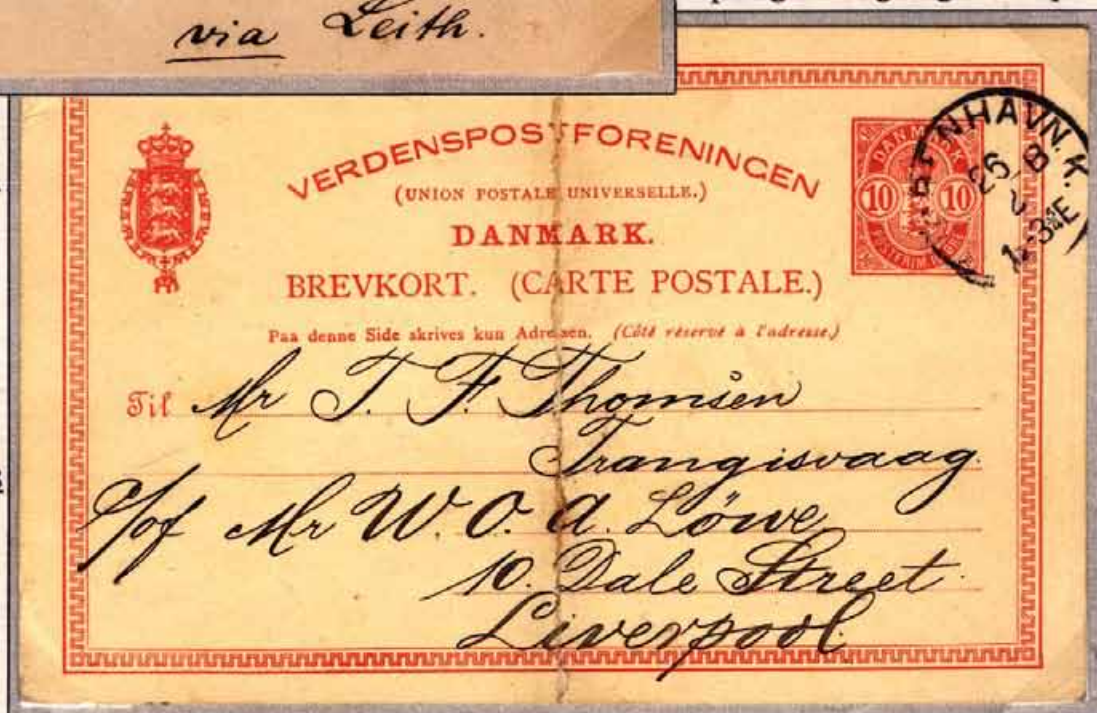 via Leith.
VERDENSPOSTFORENINGEN
(UNION POSTALE UNIVERSELLE.)
DANMARK.
BREVKORT. (CARTE POSTALE.)
Paa denne Side skrives kun Adressen. (Côté réservé à l'adresse.)
DANMARK
10 10
KJØBENHAVN. K.
26 8
Til Mr T. F. Thomsen
Trangisvaag.
c/of Mr W. O. A. Löwe
10. Dale Street.
Liverpool.